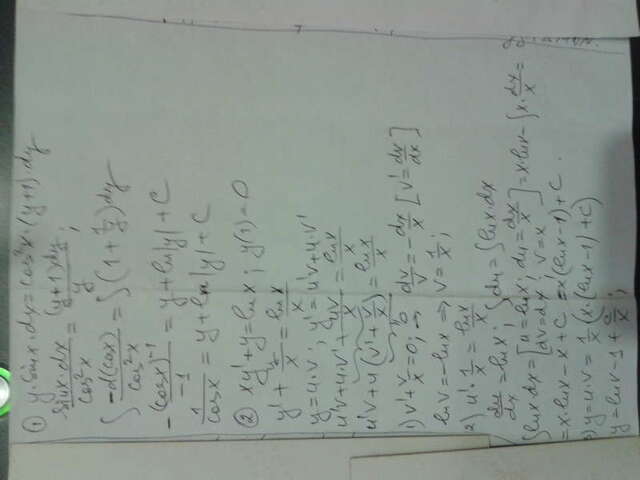 ① y·sinx·dx = cos²x·(y+1)·dy
sinx·dx/cos²x = (y+1)dy/y;
∫ -d(cosx)/cos²x = ∫(1+1/y)dy
-(cosx)⁻¹/-1 = y+ln|y|+C
1/cosx = y+ln|y|+C
② xy'+y=lnx; y(1)=0
y'+y/x=lnx/x
y=u·v; y'=u'v+u·v'
u'v+u·v'+uv/x=lnx/x
u'v+u(v'+v/x)=lnx/x
1) v'+v/x=0; → dv/v=-dx/x [v'=dv/dx]
lnv=-lnx ⇒ v=1/x;
2) u'·1/x=lnx/x
du/dx=lnx; ∫du=∫lnx·dx
∫lnx dx=[u=lnx; du=dx/x; dv=dx; v=x]=x·lnx-∫x·dx/x=
=x·lnx-x+C=x(lnx-1)+C.
3) y=u·v=1/x(x·(lnx-1)+C)
y=lnx-1+C/x;